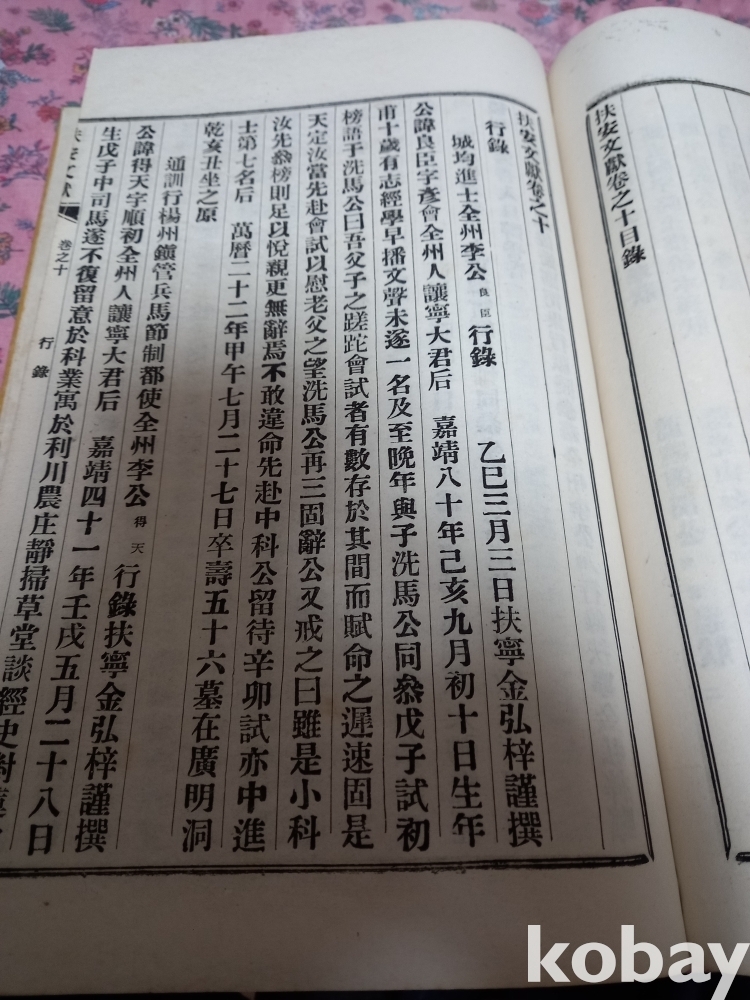 扶安文獻卷之十目錄
扶安文獻卷之十
行錄
城均進士全州李公良臣行錄 乙巳三月三日扶寧金弘梓謹撰
公諱良臣字彥會全州人讓寧大君后 嘉靖八十年己亥九月初十日生年
甫十歲有志經學早播文聲未遂一名及至晚年與子洗馬公同叅戊子試初
榜語于洗馬公曰吾父子之蹉跎會試者有數存於其間而賦命之遲速固是
天定汝當先赴會試以慰老父之望洗馬公再三固辭公又戒之曰雖是小科
汝先叅榜則足以悅親更無辭焉不敢違命先赴中科公留待辛卯試亦中進
士第七名后 萬曆二十二年甲午七月二十七日卒壽五十六墓在廣明洞
乾亥丑坐之原
通訓行楊州鎭管兵馬節制都使全州李公得天行錄扶寧金弘梓謹撰
公諱得天字順初全州人讓寧大君后 嘉靖四十一年壬戌五月二十八日
生戊子中司馬遂不復留意於科業寓於利川農庄靜掃草堂談經史對
扶安文獻 卷之十 行錄
kobay